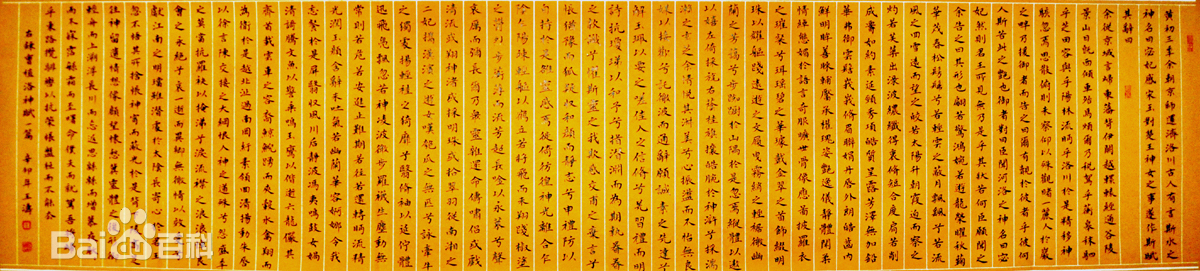 黄初三年余朝京師還濟洛川古人有言斯水之
神名曰宓妃感宋玉對楚王神女之事遂作斯賦
其辭曰
余從京域言歸東藩背伊闕越轘轅經通谷陵
景山日既西傾車殆馬煩爾乃稅駕乎蘅皋秣駟
乎芝田容與乎陽林流眄乎洛川於是精移神
駭忽焉思散俯則未察仰以殊觀睹一麗人於巖
之畔乃援御者而告之曰爾有覿於彼者乎彼何
人斯若此之艷也御者對曰臣聞河洛之神名曰宓
妃然則君王所見無乃是乎其狀若何臣願聞之
余告之曰其形也翩若驚鴻婉若遊龍榮曜秋菊
華茂春松髣髴兮若輕雲之蔽月飄颻兮若流
風之回雪遠而望之皎若太陽升朝霞迫而察之
灼若芙蕖出淥波穠纖得衷修短合度肩若削
成腰如約素延頸秀項皓質呈露芳澤無加鉛
華弗御雲髻峨峨修眉聯娟丹唇外朗皓齒內
鮮明眸善睞靨輔承權瓌姿艷逸儀靜體閑柔
情綽態媚於語言奇服曠世骨像應圖披羅衣
之璀粲兮珥瑤碧之華琚戴金翠之首飾綴明
珠以耀軀踐遠遊之文履曳霧綃之輕裾微幽
蘭之芳藹兮步踟躕於山隅於是忽焉縱體以遨
以嬉左倚采旄右蔭桂旗攘皓腕於神滸兮采湍
瀨之玄芝余情悅其淑美兮心振蕩而不怡無良
媒以接歡兮托微波而通辭願誠素之先達兮
解玉佩以要之嗟佳人之信修兮羌習禮而明
詩抗瓊珶以和予兮指潛淵而為期執眷眷
之款實兮懼斯靈之我欺感交甫之棄言兮
悵猶豫而狐疑收和顏而靜志兮申禮防以
自持於是洛靈感焉徙倚彷徨神光離合乍
陰乍陽竦輕軀以鶴立若將飛而未翔踐椒塗
之郁烈步蘅薄而流芳超長吟以永慕兮聲
哀厲而彌長爾乃眾靈雜遝命儔嘯侶或戲
清流或翔神渚或採明珠或拾翠羽從南湘之
二妃攜漢濱之遊女嘆匏瓜之無匹兮詠牽牛
之獨處揚輕袿之綺靡兮翳修袖以延佇體
迅飛鳧飄忽若神凌波微步羅襪生塵動無
常則若危若安進止難期若往若還轉眄流精
光潤玉顏含辭未吐氣若幽蘭華容婀娜令我
忘餐於是屏翳收風川后靜波馮夷鳴鼓女媧
清歌騰文魚以警乘鳴玉鸞以偕逝六龍儼其
齊首載雲車之容裔鯨鯢踴而夾轂水禽翔而
為衛於是越北沚過南岡紆素領回清揚動朱唇
以徐言陳交接之大綱恨人神之道殊兮怨盛年
之莫當抗羅袂以掩涕兮淚流襟之浪浪悼良
會之永絕兮哀一逝而異鄉無微情以效愛兮
獻江南之明璫雖潛處於太陰長寄心於君王
忽不悟其所捨悵神宵而蔽光於是背下陵高足
往神留遺情想像顧望懷愁冀靈體之復形御
輕舟而上溯浮長川而忘返思綿綿而增慕夜耿耿
而不寐霑繁霜而至曙命僕夫而就駕吾將歸
乎東路攬騑轡以抗策悵盤桓而不能去
右錄曹植洛神賦一篇 辛卯年王濤
Bai百科